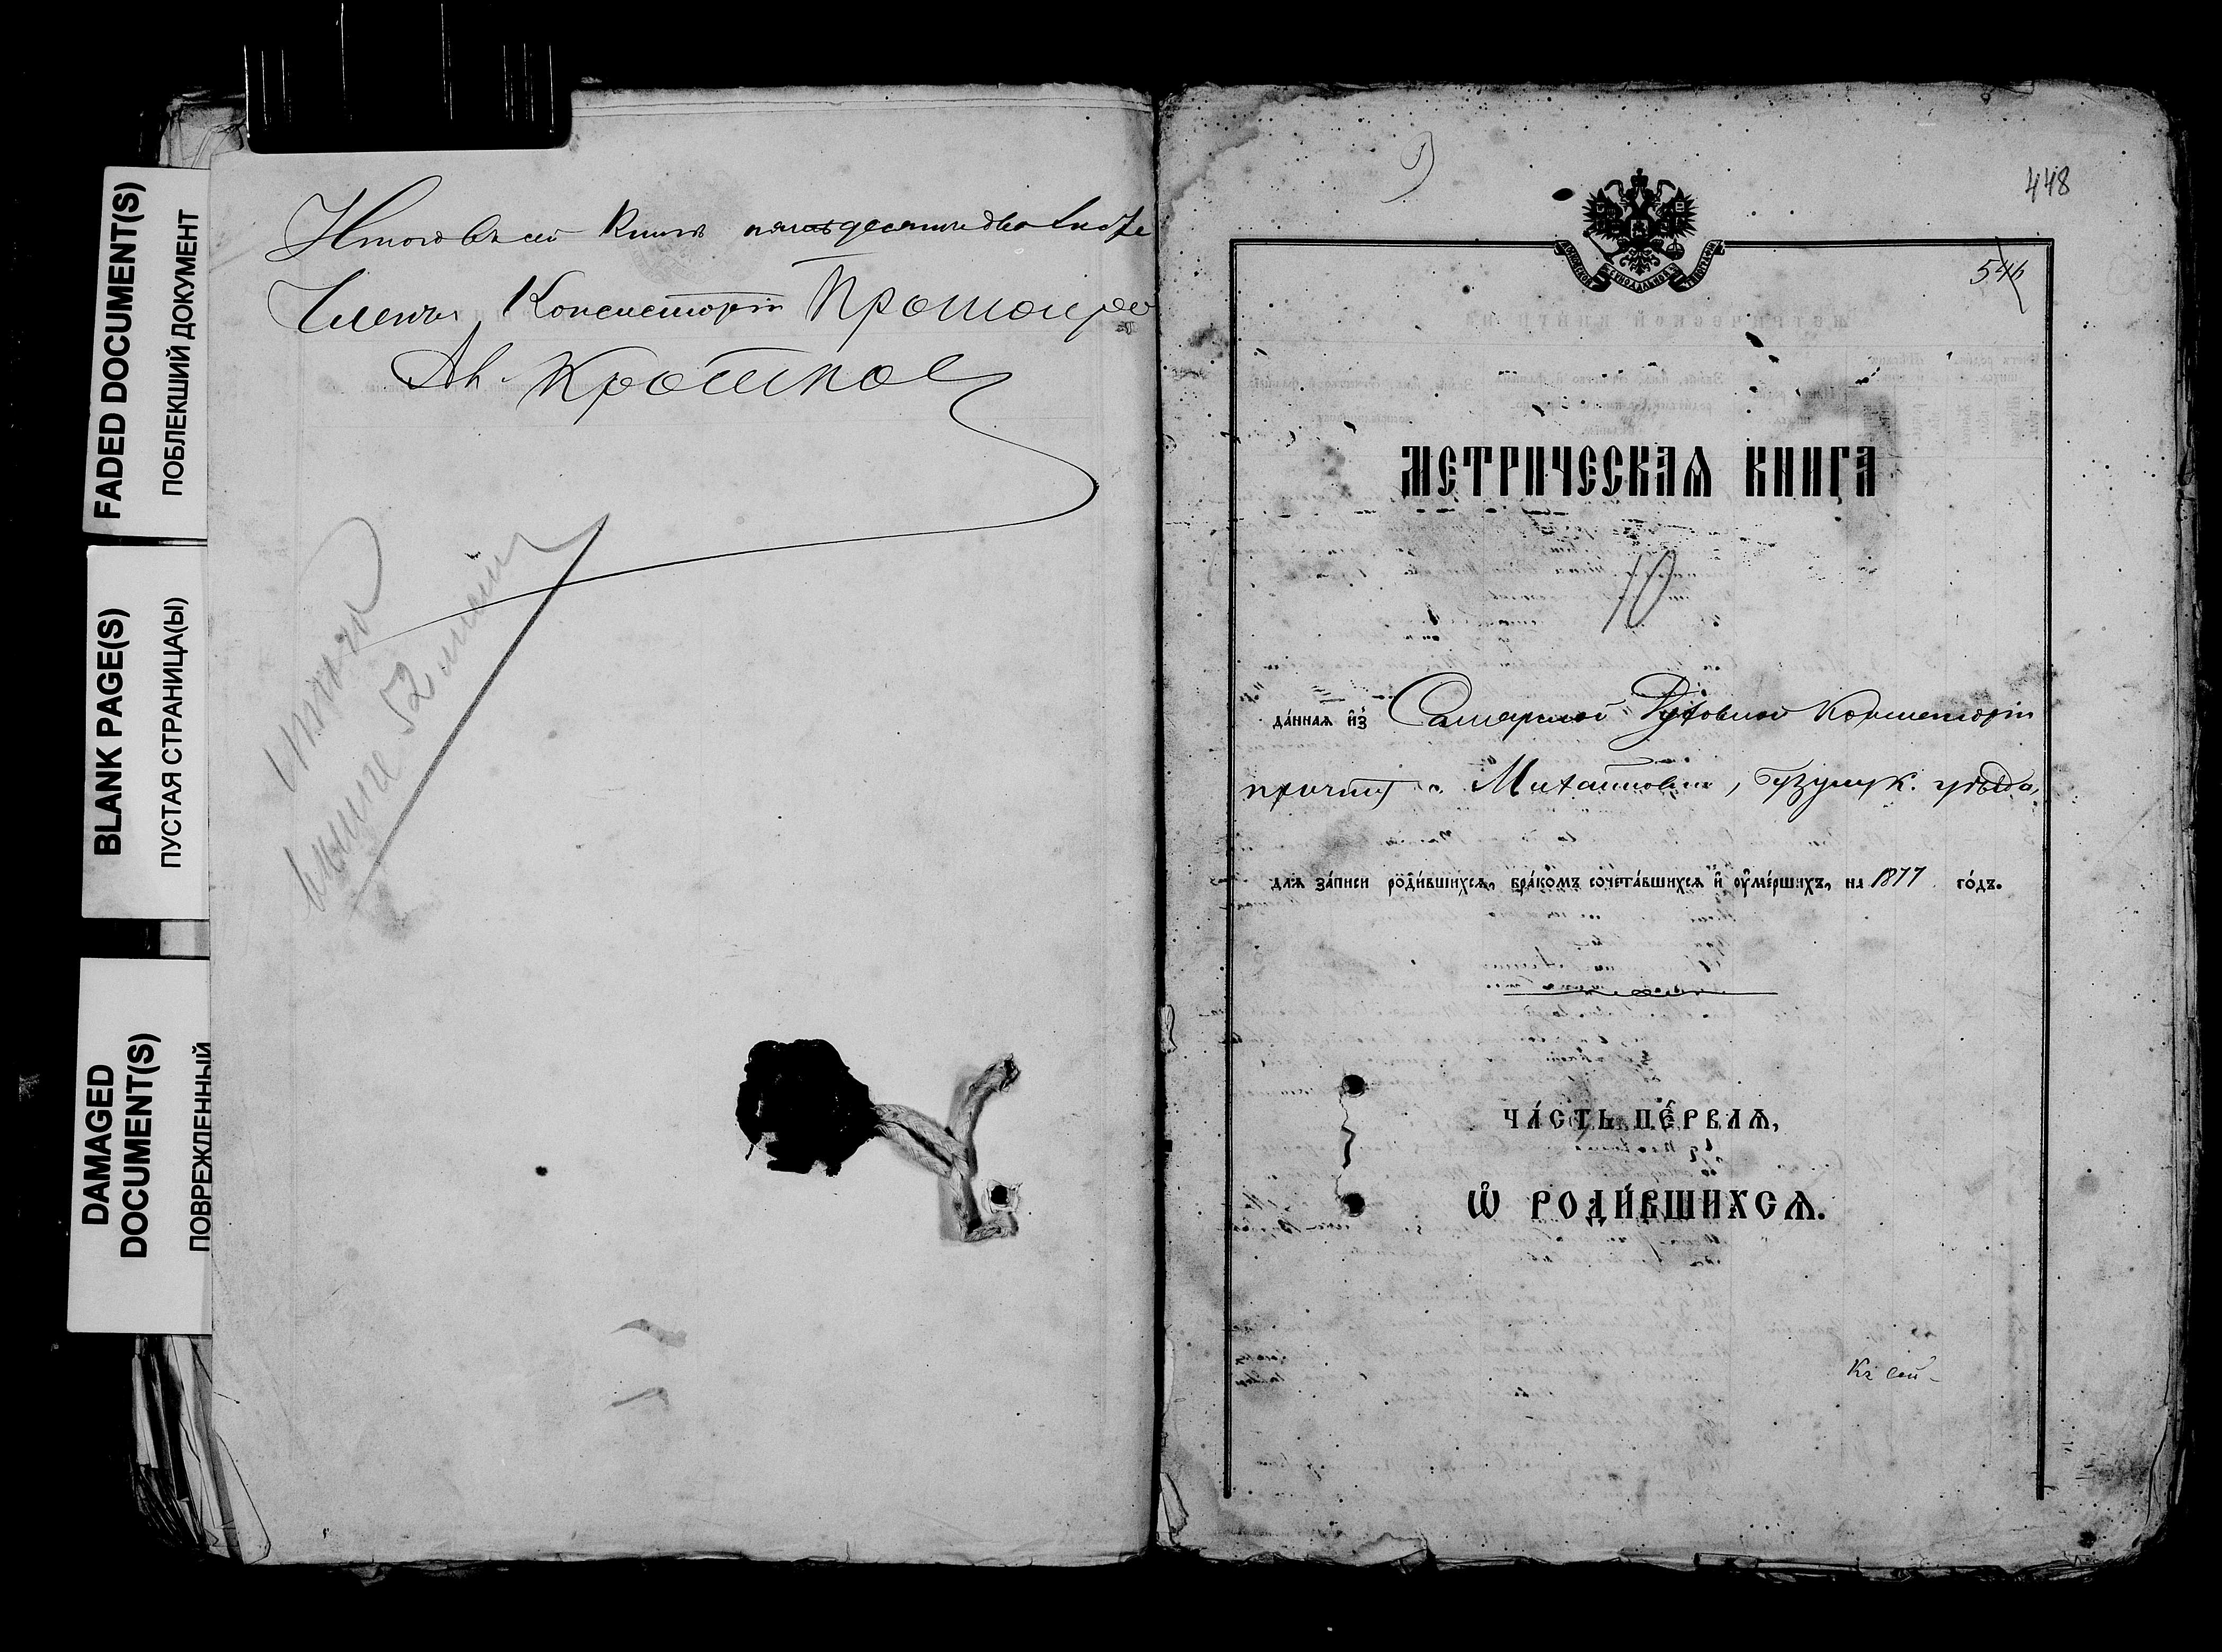 FADED DOCUMENT(S)
ПОБЛЕКШИЙ ДОКУМЕНТ
BLANK PAGE(S)
ПУСТАЯ СТРАНИЦА(Ы)
DAMAGED
DOCUMENT(S)
ПОВРЕЖДЕННЫЙ
Итого въ сей книгѣ пятьдесятъ два листа
Членъ Консисторіи Протоіерей
Итого
52
448
МЕТРИЧЕСКАѦ КНИГА
10
да́ннаѧ и҆з̾ Самарской Духовной Консисторіи
причту с. Михайловки, Бузулук. уѣзда,
длѧ за́писи роди́вшихсѧ, бра́комъ сочета́вшихсѧ и҆ оу҆ме́ршихъ, на 1877 го́дъ.
ЧА́СТЬ ПЕ́РВАѦ,
Ѡ҆ РОДИ́ВШИХСѦ.